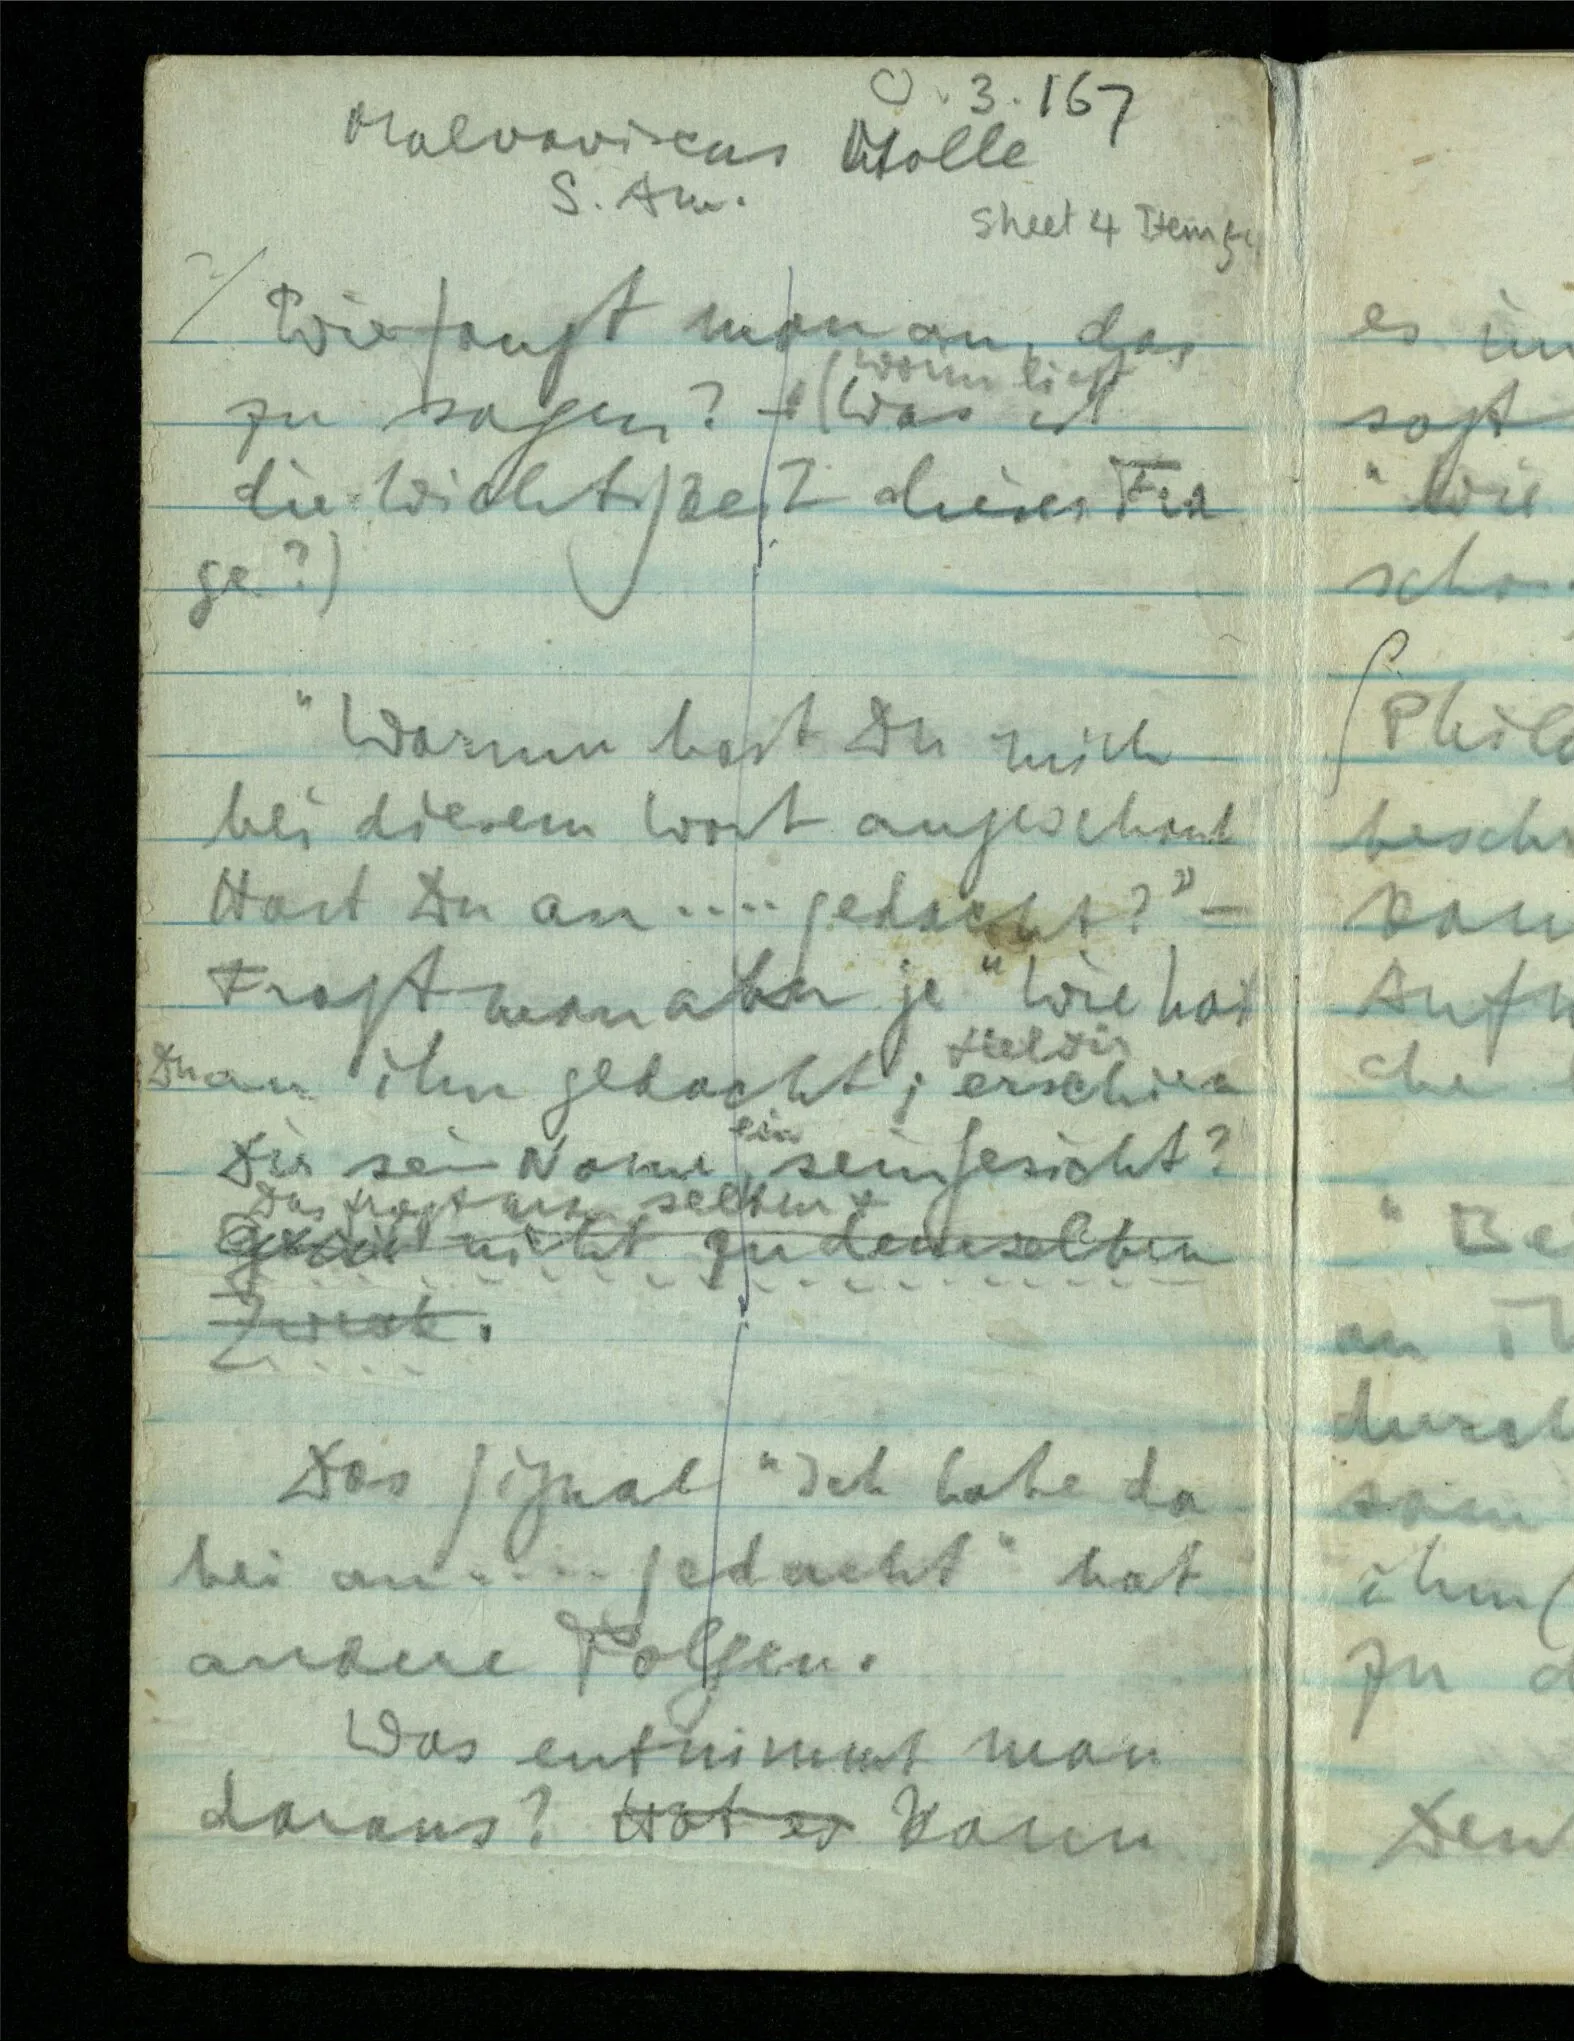 O.3.167
Malvaviscus Molle
S. Am.
Sheet 4 Item
Wie fangt man an, das
worin liegt
zu sagen? – (Was ist
die Wichtigkeit dieser Fra
ge?)
"Warum hast Du mich
bei diesem Wort angeschaut
Hast Du an .... gedacht?" –
Fragt man aber je "Wie hast
Du an ihn gedacht; erschien
fiel Dir
Dir sein Name, sein Gesicht?
ein
Das fragt man selten
nicht zu demselben
Zweck.
Das Signal "Ich habe da
bei an ..... gedacht" hat
andere Folgen.
Was entnimmt man
daraus? Hat es Kann
es im
sagt
"Wie
scho
Philo
beschr
kann
Aufm
che
"Be
an Ih
durch
sam
ihm (
zu d
Den